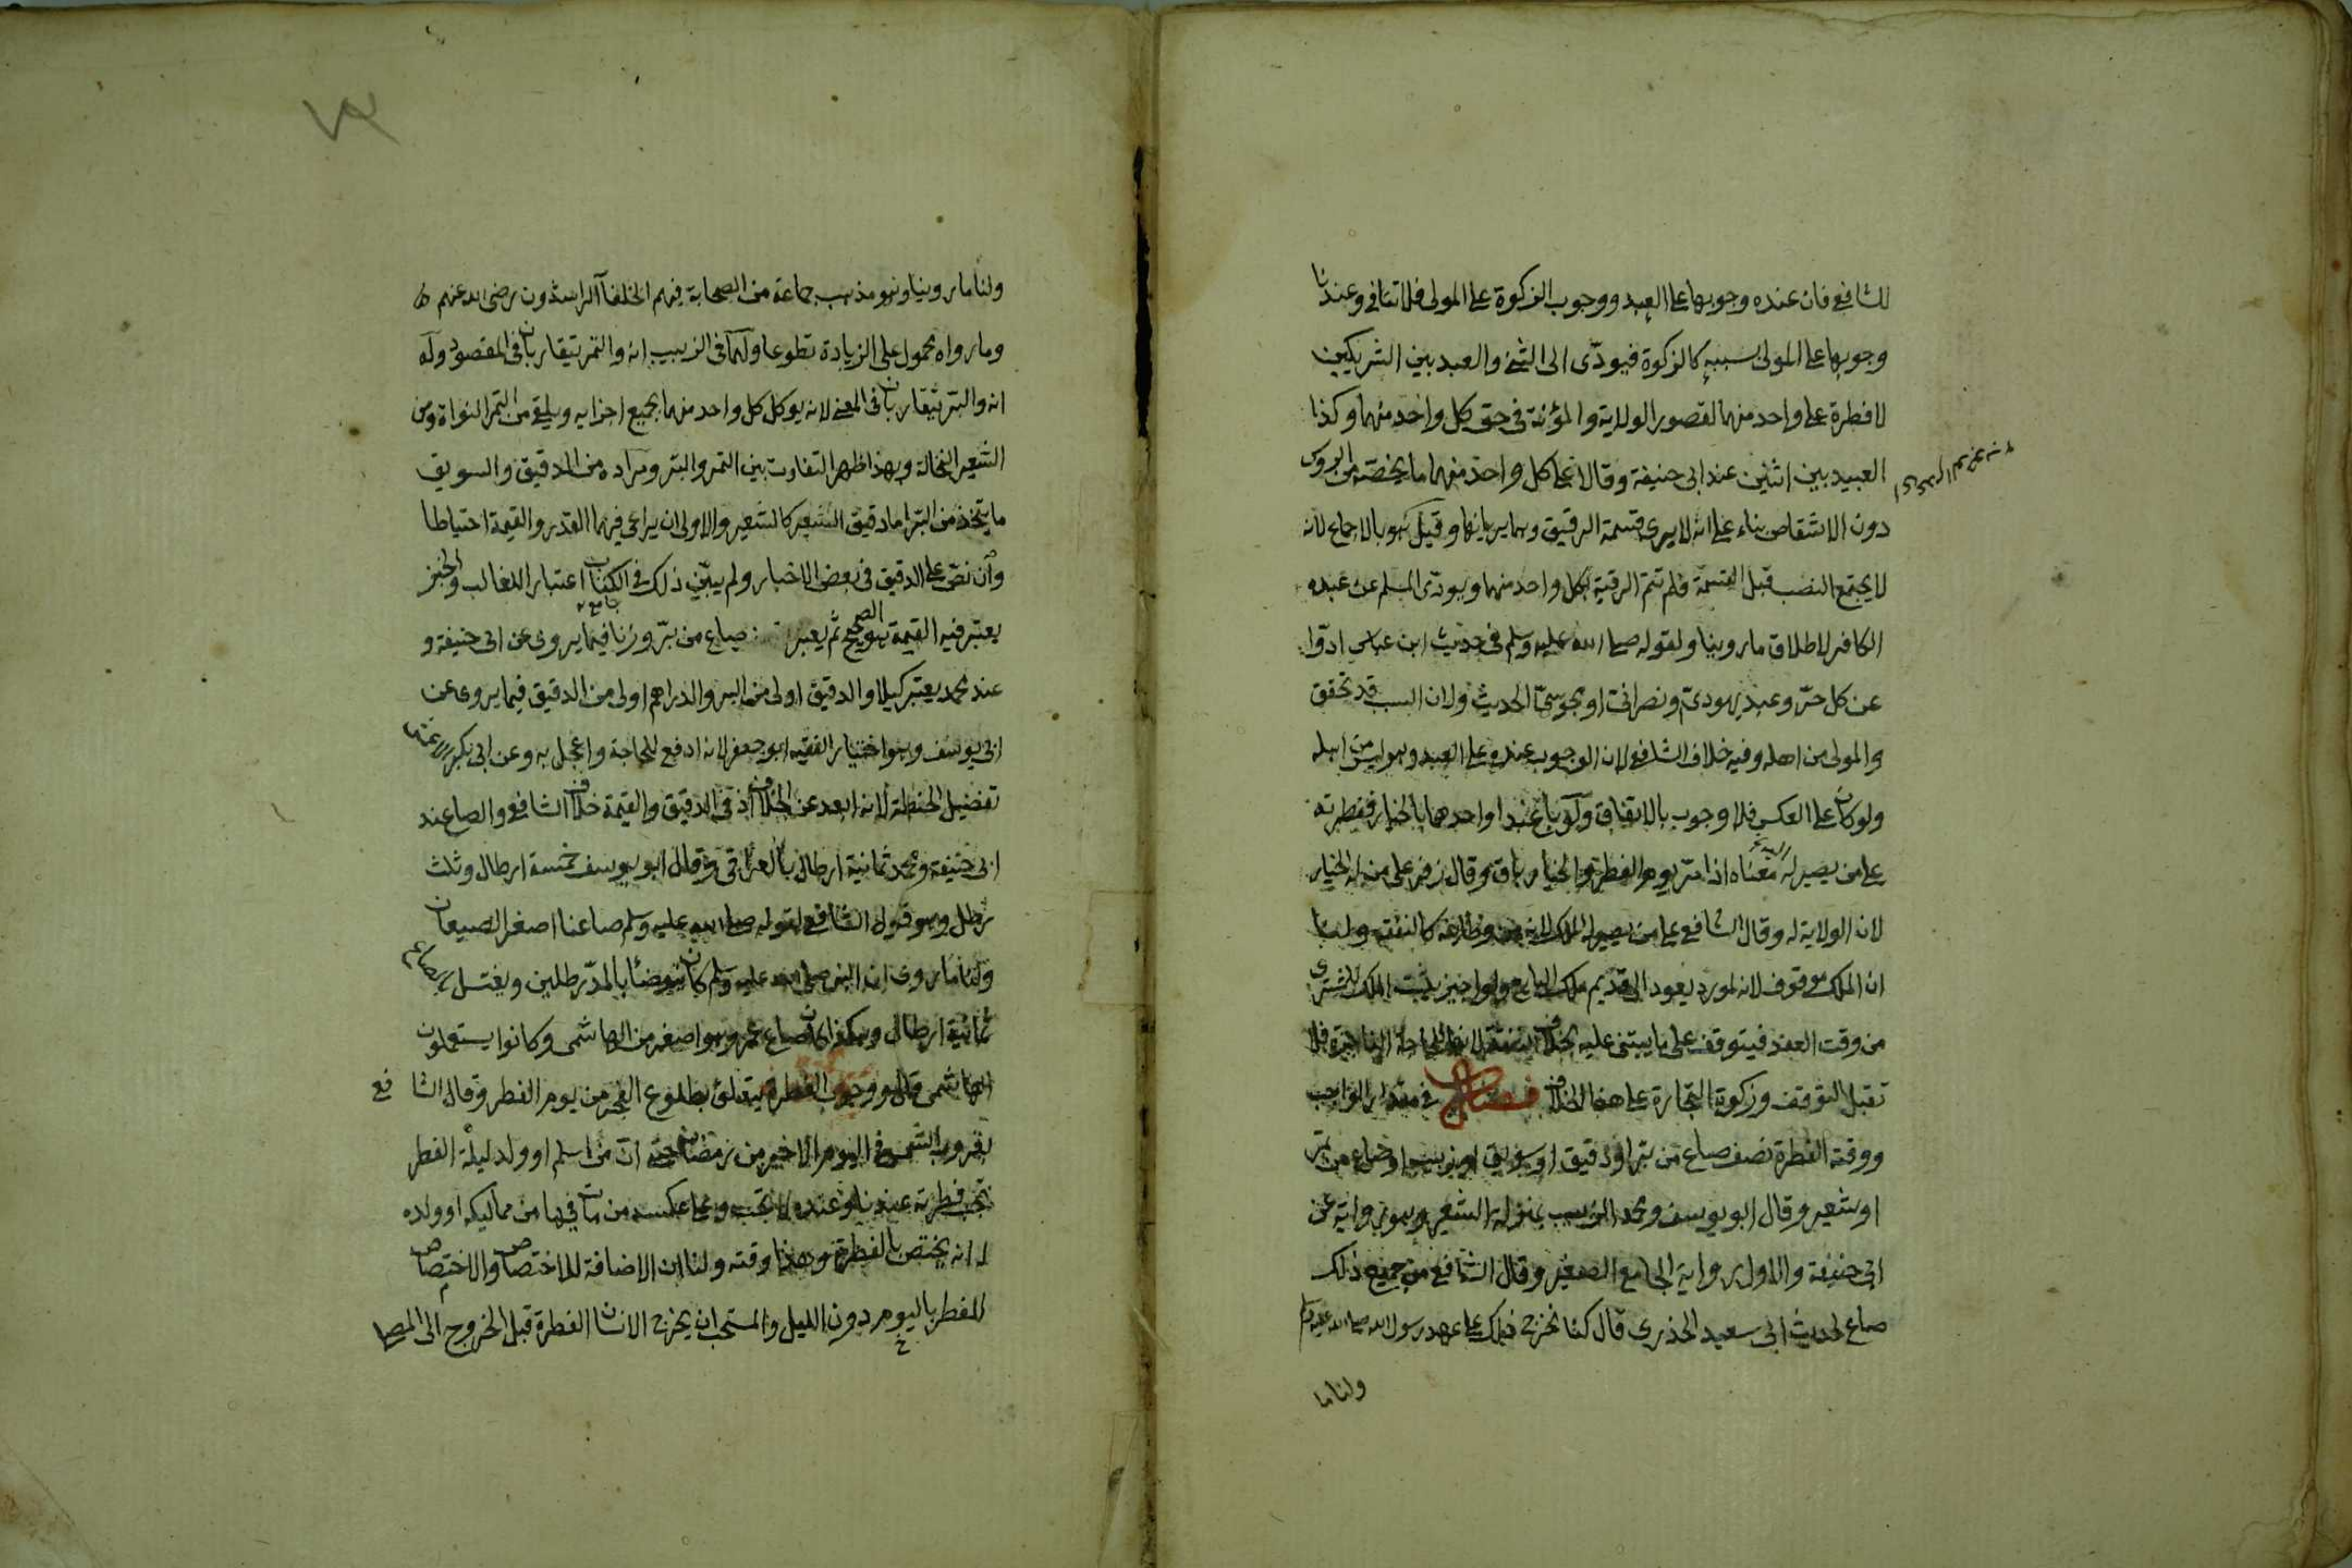 للشافعي فان عنده وجوبها على العبد ووجوب الزكوة على المولى فلا تنافي وعندنا
وجوبها على المولى بسببه كالزكوة فيودّى الى الثنى والعبد بين الشريكين
لا فطرة على واحد منهما لقصور الولاية والمؤنة فى حق كل واحد منهما وكذا
العبيد بين اثنين عند ابى حنيفة وقالا على كل واحد منهما ما يخصه من الروس
دون الاشقاص بناء على انه لا يرى قسمة الرقيق وهما يريانها وقيل هو بالاجماع لانه
لا يجتمع النصب قبل القسمة فلم تتم الرقبة لكل واحد منهما ويودّى المسلم عن عبده
الكافر لاطلاق ما روينا ولقوله صلى الله عليه وسلم فى حديث ابن عباس ادّوا
عن كل حرّ وعبد يهودىّ ونصرانى او مجوسىّ الحديث ولان السبب قد تحقق
والمولى من اهله وفيه خلاف الشافعى لان الوجوب عنده على العبد وهو ليس من اهله
ولو كان على العكس فلا وجوب بالاتفاق ولو باع عبدا واحدهما بالخيار ففطرته
على من يصير له معناه اذا مرّ يوم الفطر والخيار باق وقال زفر على من له الخيار
لان الولاية له وقال الشافعى على من يصير له الملك لانه من وظائفه كالنفقة ولنا
ان الملك موقوف لانه لو رد يعود الى قديم ملك البايع ولو اجيز يثبت الملك للمشترى
من وقت العقد فيتوقف على ما يبتنى عليه بخلاف النفقة لانها للحاجة الناجزة فلا
تقبل التوقف وزكوة التجارة على هذا الخلاف فصل فى مقدار الواجب
ووقته الفطرة نصف صاع من بر او دقيق او سويق او زبيب او صاع من تمر
او شعير وقال ابو يوسف ومحمد الزبيب بمنزلة الشعير وهو رواية عن
ابى حنيفة والاول رواية الجامع الصغير وقال الشافعى من جميع ذلك
صاع لحديث ابى سعيد الخذرى قال كنا نخرج ذلك على عهد رسول الله صلى الله عليه وسلم
ولنا ما
ولنا ما روينا وهو مذهب جماعة من الصحابة فيهم الخلفآ الراشدون رضى الله عنهم
وما رواه محمول على الزيادة تطوعا ولهما فى الزبيب انه والتمر يتقاربان فى المقصود وله
انه والبر يتقاربان فى المعنى لانه يوكل كل واحد منهما بجميع اجزايه ويلقى من التمر النواة ومن
الشعير النخالة وبهذا ظهر التفاوت بين التمر والبر ومراده من الدقيق والسويق
ما يتخذ من البر اما دقيق الشعير كالشعير والاولى ان يراعى فيهما القدر والقيمة احتياطا
وان نصّ على الدقيق فى بعض الاخبار ولم يبيّن ذلك فى الكتاب اعتبار اللغالب والخبز
يعتبر فيه القيمة هو الصحيح ثم يعبر صاع من برّ وزنا فيما يروى عن ابى حنيفة و
عند محمد يعتبر كيلا والدقيق اولى من البر والدراهم اولى من الدقيق فيما يروى عن
ابى يوسف وهو اختيار الفقيه ابو جعفر لانه ادفع للحاجة واعجل به وعن ابى بكر
تفضيل الحنطة لانه ابعد عن الخلاف اذ فى الدقيق والقيمة خلاف الشافعى والصاع عند
ابى حنيفة ومحمد ثمانية ارطال بالعراقى وقال ابو يوسف خمسة ارطال وثلث
رطل وهو قول الشافعى لقوله صلى الله عليه وسلم صاعنا اصغر الصيعان
ولنا ما روى ان النبى صلى الله عليه وسلم كان يتوضئا بالمدّ رطلين ويغتسل
ثمانية ارطال وهكذا كان صاع عمر وهو اصغر من الهاشمى وكانوا يستعملون
الهاشمى قال ووجوب الفطرة يتعلق بطلوع الفجر من يوم الفطر وقال الشافع
بغروب الشمس فى اليوم الاخير من رمضان حتى انّ من اسلم او ولد ليلة الفطر
تجب فطرته عندنا وعنده لا تجب وعلى عكسه من مات فيها من مماليكه او ولده
له انه يختص بالفطر وهذا وقته ولنا ان الاضافة للاختصاص والاختصاص
للفطر باليوم دون الليل والمستحب ان يخرج الانسان الفطرة قبل الخروج الى المصلى